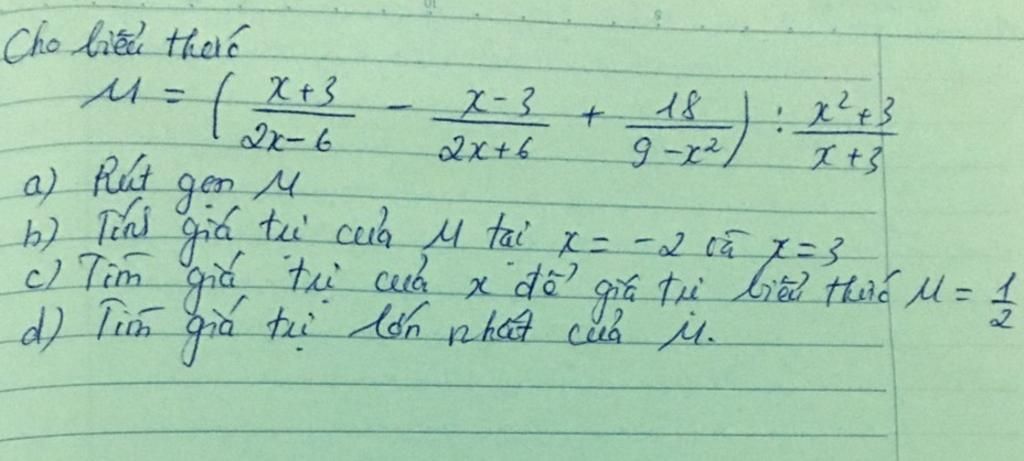 Cho biểu thức
M = ( x+3 / 2x-6 - x-3 / 2x+6 + 18 / 9-x² ) : x²+3 / x+3
a) Rút gọn M
b) Tính giá trị của M tại x = -2 và x = 3
c) Tìm giá trị của x để giá trị biểu thức M = 1/2
d) Tìm giá trị lớn nhất của M.